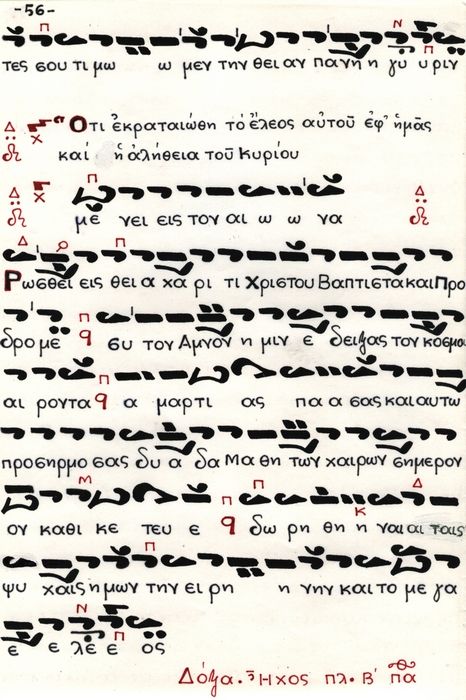 -56-
τες σου τι μω ω μεν την θει αν πα νη η γυ υ ριν
Ὅτι ἐκραταιώθη τὸ ἔλεος αὐτοῦ ἐφ' ἡμᾶς
καί ἡ ἀλήθεια τοῦ Κυρίου
με νει εις τον αι ω ω να
Ρωσθει εις θει α χα ρι τι Χριστου Βαπτιστα και Προ
δρο με συ τον Αμνον η μιν ε δειξας τον κοσμο
αι ροντα α μαρτι ας πα α σας και αυτω
προσηρμο σας δυ α δα Μα θη των χαιρων σημερον
ου καθι κε τευ ε δω ρη θη η ναι αι ταις
ψυ χαις η μων την ει ρη η νην και το με γα
ε ε λε ε ος
Δόξα. Ἦχος πλ. Β' πα